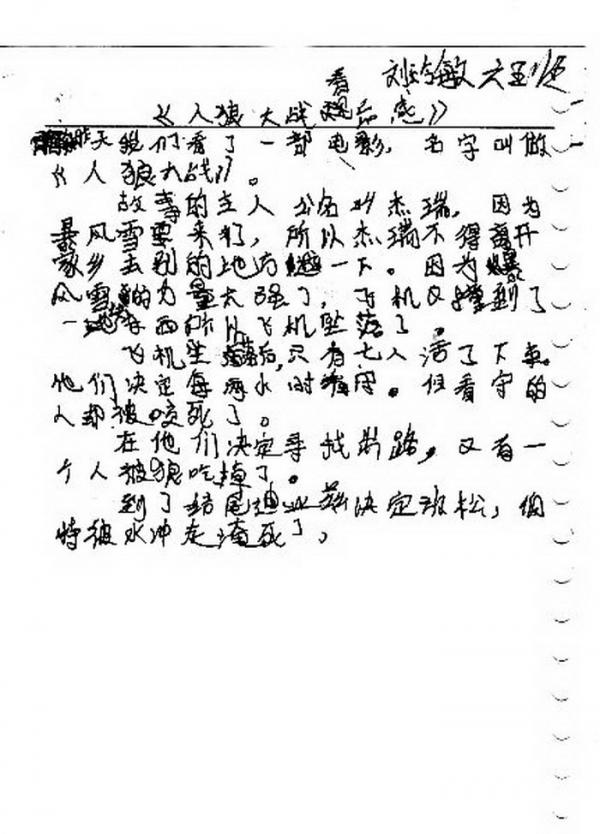 刘玲敏 六五班
《人狼大战观后感》
看
昨天我们看了一部电影,名字叫做
《人狼大战》。
故事的主人公名叫杰瑞,因为
暴风雪要来了,所以杰瑞不得离开
家乡去别的地方避一下。因为暴
风雪的力量太强了,飞机又撞到了
一
飞机坠落了。
飞机坠落后,只有七人活了下来。
他们决定每两小时看守。但看守的
人却被咬死了。
在他们决定寻找出路,又有一
个人被狼吃掉了。
到了结尾迪亚兹决定放松,但
特被水冲走淹死了。